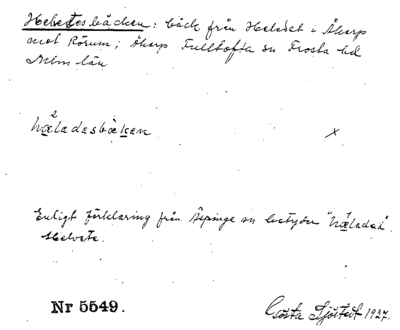 Helvetesbäcken: bäck från Helvdet i Åkarp
mot Rörum; Åkarp Fulltofta sn Frosta hd
Mlm län
hæladesbæken ×
Enligt förklaring från Äspinge sn betyder "hæladad"
Helvete.
Nr 5549.
Gösta Sjöstedt 1927.